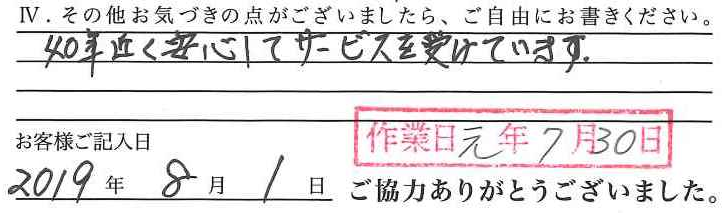 Ⅳ．その他お気づきの点がございましたら、ご自由にお書きください。
40年近く安心してサービスを受けています。
お客様ご記入日
作業日元年7月30日
2019年 8月 1日 ご協力ありがとうございました。